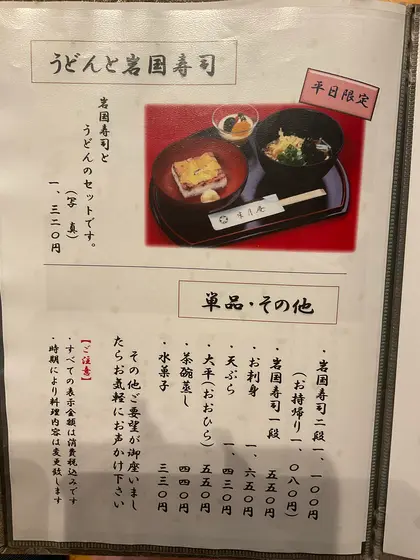 うどんと岩国寿司
平日限定
岩国寿司と
うどんのセットです。
(写 真)
一、三二〇円
半月庵
単品・その他
・岩国寿司二段 一、一〇〇円
(お持帰り 一、〇八〇円)
・岩国寿司一段 五五〇円
・お刺身 一、六五〇円
・天ぷら 一、四三〇円
・大平(おおひら) 五五〇円
・茶碗蒸し 四四〇円
・水菓子 三三〇円
その他ご要望が御座いまし
たらお気軽にお声かけ下さい
【ご注意】
・すべての表示金額は消費税込みです
・時期により料理内容は変更致します